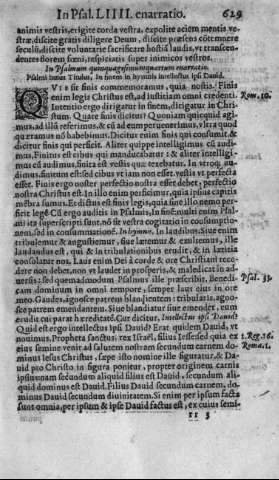 In Psal. LIIII. enarratio. 629
animis vestris, erigite corda vestra, expolite aciem mentis vestræ, discite gratis diligere Deum, discite præsens contemnere
seculũ, discite voluntarie sacrificare hostiã laudis, vt transcendentes florem fœni, respiciatis super inimicos vestros.
In Psalmum quinquagesimumquartum enarratio.
Psalmi huius Titulus, In finem in hymnis intellectus ipsi Dauid.
QVis sit finis commemoramus, quia nostis. Finis
enim legis Christus est, ad iustitiam omni credenti. Rom. 10.
Intentio ergo dirigatur in finem, dirigatur in Christum. Quare finis dicitur? Quoniam quicquid agimus, ad illũ referimus, & cũ ad eum peruenerimus, vltra quod
quæramus nõ habebimus. Dicitur enim finis qui consumit, &
dicitur finis qui perficit. Aliter quippe intelligimus, cũ audimus, Finitus est cibus qui manducabatur: & aliter intelligimus cũ audimus, finita est vestis quæ texebatur. In vtroq; audimus, finitum est: sed cibus vt iam non esset, vestis vt perfecta
esset. Finis ergo noster perfectio nostra esse debet, perfectio
nostra Christus est. In illo enim perficimur, quia ipsius capitis
mẽbra sumus. Et dictus est finis legis, quia sine illo nemo perficit legẽ. Cũ ergo auditis in Psalmis, In finẽ, multi enim Psalmi ita superscripti sunt, nõ sit vestra cogitatio in consumptionem, sed in consummationem. In hymnis. In laudibus. Siue enim
tribulemur & angustiemur, siue lætemur & exultemus, ille
laudandus est, qui & in tribulationibus erudit, & in lætitia
consolatur nos. Laus enim Dei à corde & ore Christiani recedere non debet, non vt laudet in prosperis, & maledicat in aduersis: sed quemadmodum Psalmus ille præscribit, Benedicam dominum in omni tempore, semper laus eius in ore Psal. 33.
meo. Gaudes, agnosce patrem blandientem: tribularis, agnosce patrem emendantem. Siue blandiatur siue emendet, eum
erudit cui parat hæreditatẽ. Qui ergo, Intellectus ipsi Dauid?
Quid est ergo intellectus ipsi Dauid? Erat quidem Dauid, vt
nouimus, Propheta sanctus, rex Israel, filius Iesse: sed quia ex 1. Reg. 16.
eius semine venit ad salutem nostram secundum carnem dominus Iesus Christus, sæpe isto nomine ille figuratur, & Da- Roma. 1.
uid pro Christo in figura ponitur, propter originem carnis
ipsius: nam secundum aliquid filius est Dauid, secundum aliquid dominus est Dauid. Filius Dauid secundum carnem, dominus Dauid secundum diuinitatem. Si enim per ipsum facta
sunt omnia, per ipsum & ipse Dauid factus est, ex cuius semi-
II 3